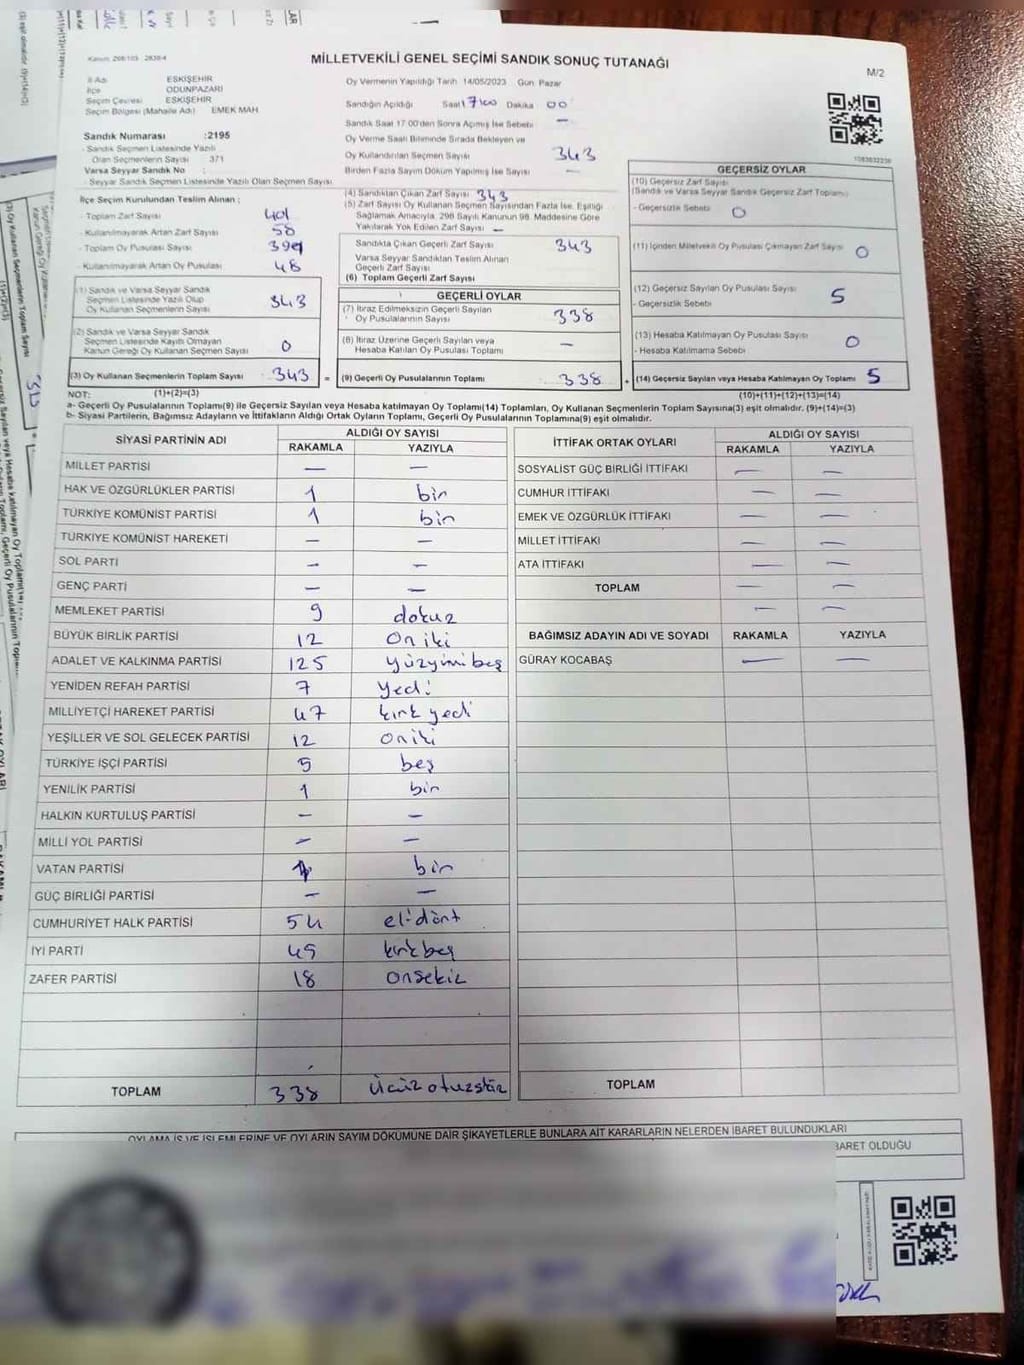 MİLLETVEKİLİ GENEL SEÇİMİ SANDIK SONUÇ TUTANAĞI
M/2
İl Adı ESKİŞEHİR
İlçe ODUNPAZARI
Seçim Çevresi ESKİŞEHİR
Seçim Bölgesi (Mahalle Adı) EMEK MAH
Sandık Numarası :2195
- Sandık Seçmen Listesinde Yazılı
Olan Seçmenlerin Sayısı 371
Varsa Seyyar Sandık No :
- Seyyar Sandık Seçmen Listesinde Yazılı Olan Seçmen Sayısı
Oy Vermenin Yapıldığı Tarih 14/05/2023 Gün Pazar
Sandığın Açıldığı Saat 17:00 Dakika 00
Sandık Saat 17.00'den Sonra Açılmış İse Sebebi —
Oy Verme Saati Bitiminde Sırada Bekleyen ve
Oy Kullandırılan Seçmen Sayısı 343
Birden Fazla Sayım Döküm Yapılmış İse Sayısı —
İlçe Seçim Kurulundan Teslim Alınan ;
- Toplam Zarf Sayısı 401
- Kullanılmayarak Artan Zarf Sayısı 58
- Toplam Oy Pusulası Sayısı
- Kullanılmayarak Artan Oy Pusulası 48
(1) Sandık ve Varsa Seyyar Sandık
Seçmen Listesinde Yazılı Olup
Oy Kullanan Seçmenlerin Sayısı 343
(2) Sandık ve Varsa Seyyar Sandık
Seçmen Listesinde Kayıtlı Olmayan
Kanun Gereği Oy Kullanan Seçmen Sayısı 0
(3) Oy Kullanan Seçmenlerin Toplam Sayısı 343 =
(1)+(2)=(3)
(4) Sandıktan Çıkan Zarf Sayısı 343
(5) Zarf Sayısı Oy Kullanan Seçmen Sayısından Fazla İse, Eşitliği
Sağlamak Amacıyla, 298 Sayılı Kanunun 98. Maddesine Göre
Yakılarak Yok Edilen Zarf Sayısı —
Sandıkta Çıkan Geçerli Zarf Sayısı 343
Varsa Seyyar Sandıktan Teslim Alınan
Geçerli Zarf Sayısı
(6) Toplam Geçerli Zarf Sayısı
GEÇERLİ OYLAR
(7) İtiraz Edilmeksizin Geçerli Sayılan
Oy Pusulalarının Sayısı 338
(8) İtiraz Üzerine Geçerli Sayılan veya
Hesaba Katılan Oy Pusulası Toplamı —
(9) Geçerli Oy Pusulalarının Toplamı 338 +
GEÇERSİZ OYLAR
(10) Geçersiz Zarf Sayısı
(Sandık ve Varsa Seyyar Sandık Geçersiz Zarf Toplamı)
- Geçersizlik Sebebi 0
(11) İçinden Milletvekili Oy Pusulası Çıkmayan Zarf Sayısı 0
(12) Geçersiz Sayılan Oy Pusulası Sayısı 5
- Geçersizlik Sebebi
(13) Hesaba Katılmayan Oy Pusulası Sayısı 0
- Hesaba Katılmama Sebebi
(14) Geçersiz Sayılan veya Hesaba Katılmayan Oy Toplamı 5
(10)+(11)+(12)+(13)=(14)
NOT:
a- Geçerli Oy Pusulalarının Toplamı(9) ile Geçersiz Sayılan veya Hesaba katılmayan Oy Toplamı(14) Toplamları, Oy Kullanan Seçmenlerin Toplam Sayısına(3) eşit olmalıdır. (9)+(14)=(3)
b- Siyasi Partilerin, Bağımsız Adayların ve İttifakların Aldığı Ortak Oyların Toplamı, Geçerli Oy Pusulalarının Toplamına(9) eşit olmalıdır.
SİYASİ PARTİNİN ADI ALDIĞI OY SAYISI
RAKAMLA YAZIYLA
MİLLET PARTİSİ — —
HAK VE ÖZGÜRLÜKLER PARTİSİ 1 bir
TÜRKİYE KOMÜNİST PARTİSİ 1 bir
TÜRKİYE KOMÜNİST HAREKETİ — —
SOL PARTİ — —
GENÇ PARTİ — —
MEMLEKET PARTİSİ 9 dokuz
BÜYÜK BİRLİK PARTİSİ 12 on iki
ADALET VE KALKINMA PARTİSİ 125 yüzyimibeş
YENİDEN REFAH PARTİSİ 7 yedi
MİLLİYETÇİ HAREKET PARTİSİ 47 kırk yedi
YEŞİLLER VE SOL GELECEK PARTİSİ 12 oniki
TÜRKİYE İŞÇİ PARTİSİ 5 beş
YENİLİK PARTİSİ 1 bir
HALKIN KURTULUŞ PARTİSİ — —
MİLLİ YOL PARTİSİ — —
VATAN PARTİSİ 1 bir
GÜÇ BİRLİĞİ PARTİSİ — —
CUMHURİYET HALK PARTİSİ 54 elidört
İYİ PARTİ 45 kırkbeş
ZAFER PARTİSİ 18 onsekiz
TOPLAM 338
İTTİFAK ORTAK OYLARI ALDIĞI OY SAYISI
RAKAMLA YAZIYLA
SOSYALİST GÜÇ BİRLİĞİ İTTİFAKI — —
CUMHUR İTTİFAKI — —
EMEK VE ÖZGÜRLÜK İTTİFAKI — —
MİLLET İTTİFAKI — —
ATA İTTİFAKI — —
TOPLAM — —
— —
BAĞIMSIZ ADAYIN ADI VE SOYADI RAKAMLA YAZIYLA
GÜRAY KOCABAŞ — —
TOPLAM
OYLAMA İŞ VE İŞLEMLERİNE VE OYLARIN SAYIM DÖKÜMÜNE DAİR ŞİKAYETLERLE BUNLARA AİT KARARLARIN NELERDEN İBARET BULUNDUKLARI
BARET OLDUĞU